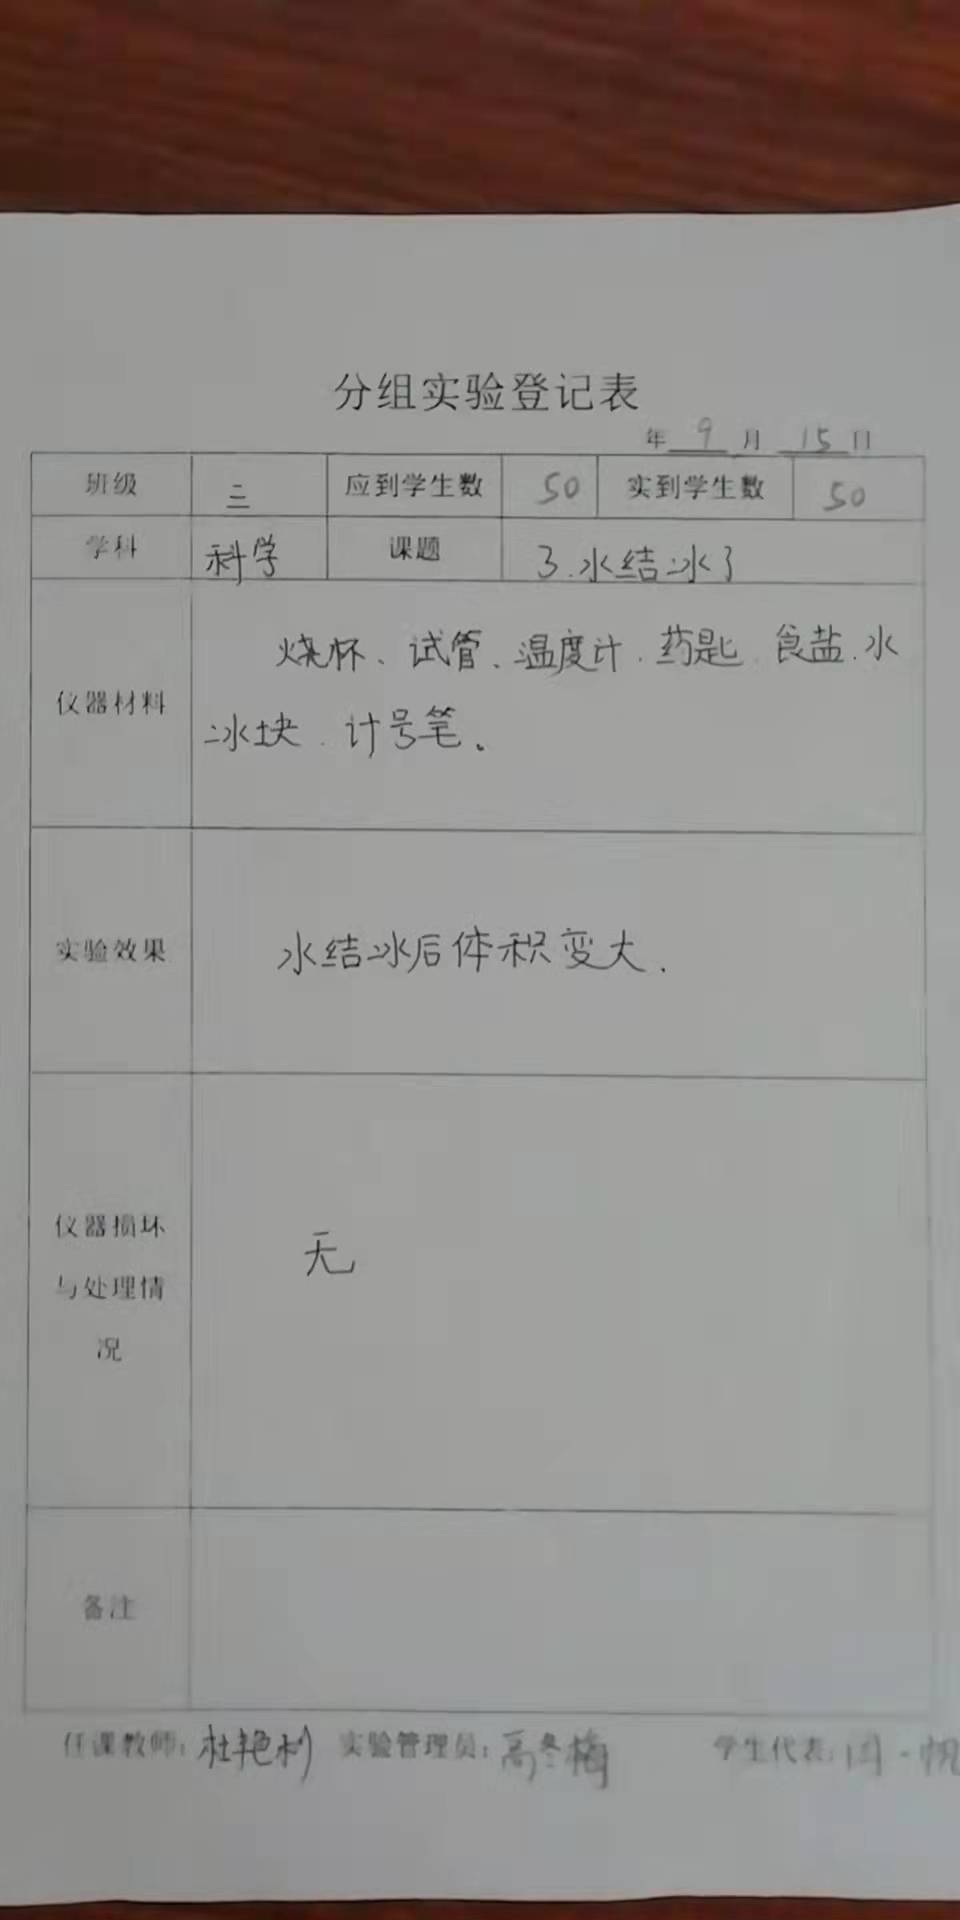 分组实验登记表
年 9 月 15 日
班级 三 应到学生数 50 实到学生数 50
学科 科学 课题 3.水结冰了
仪器材料 烧杯、试管、温度计.药匙.食盐.水
冰块.计号笔。
实验效果 水结冰后体积变大.
仪器损坏
与处理情
况
无
备注
任课教师: 杜艳 实验管理员: 高冬梅 学生代表: